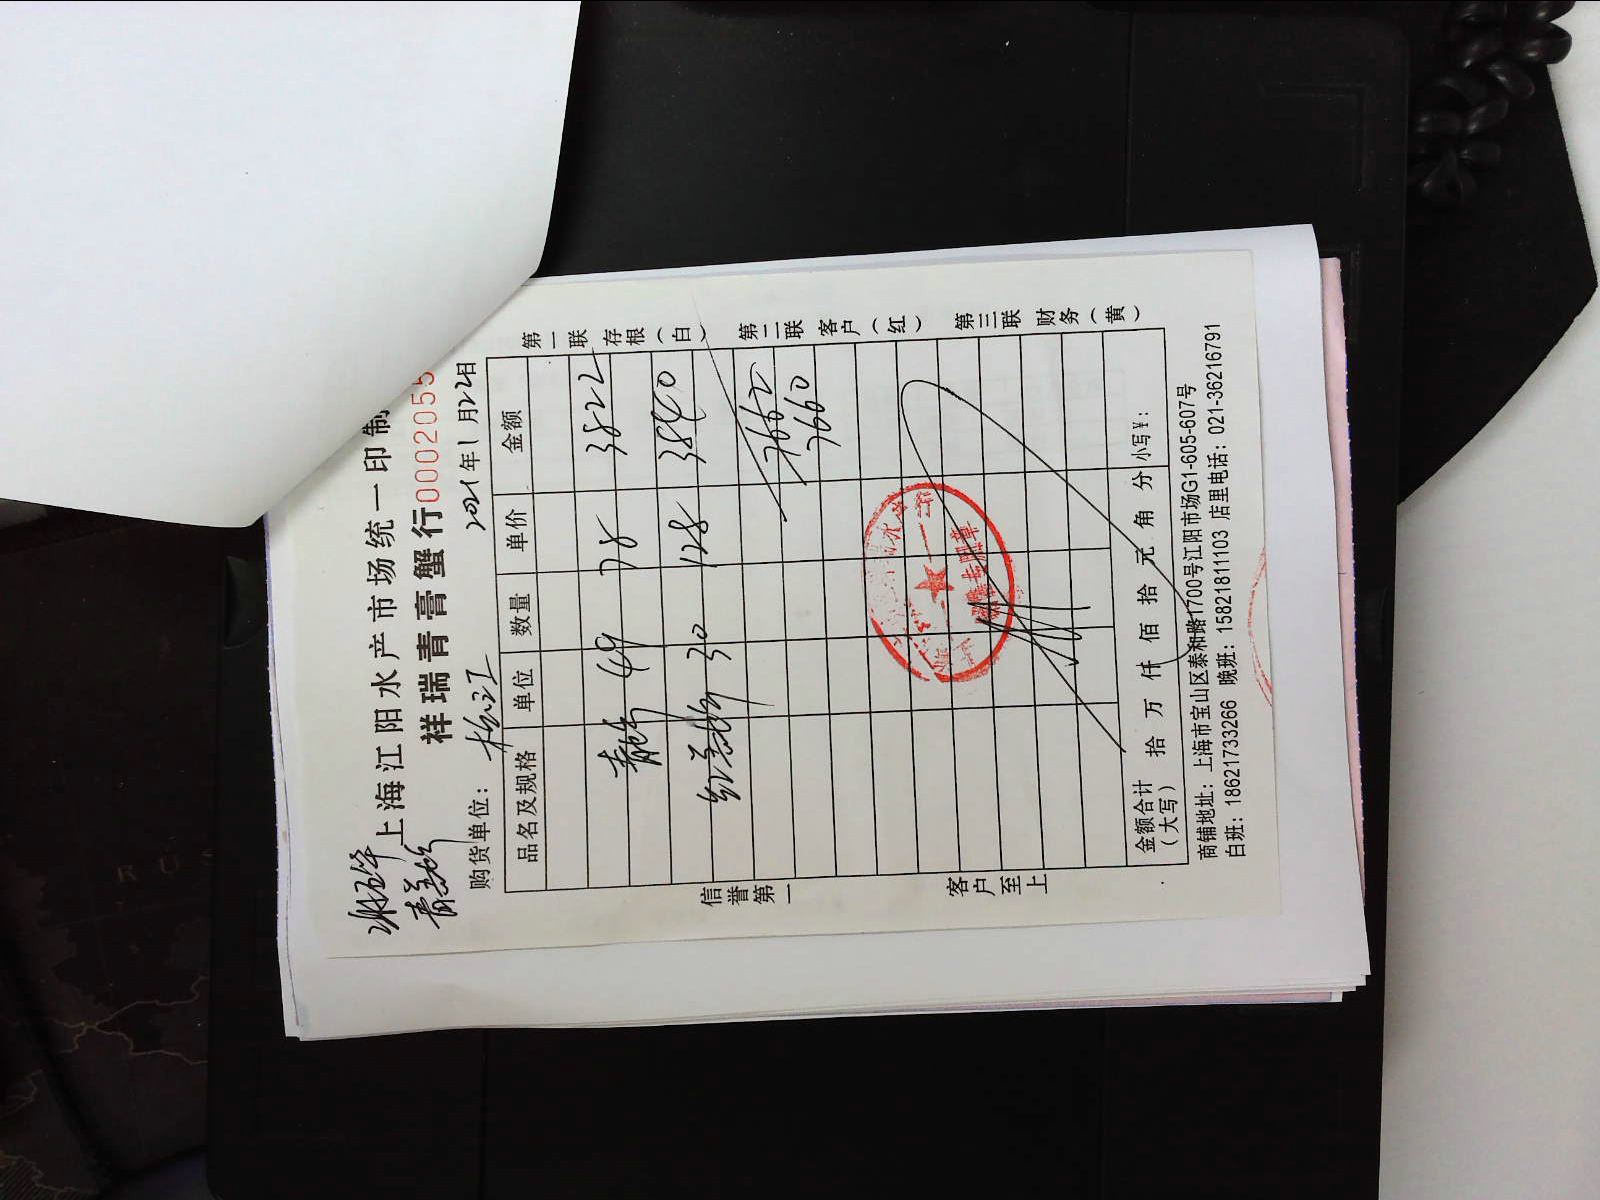 上海江阳水产市场统一印制
祥瑞青膏蟹行0002055
青膏蟹
购货单位：松江 2021年1月22日
品名及规格 单位 数量 单价 金额
青蟹 49 78 3822
红膏蟹 30 128 3840
7662
7660
金额合计（大写） 拾 万 仟 佰 拾 元 角 分 小写¥：
商铺地址：上海市宝山区泰和路1700号江阳市场G1-605-607号
白班：18621733266 晚班：15821811103 店里电话：021-36216791
第一联 存根（白） 第二联 客户（红） 第三联 财务（黄）
信誉第一 客户至上